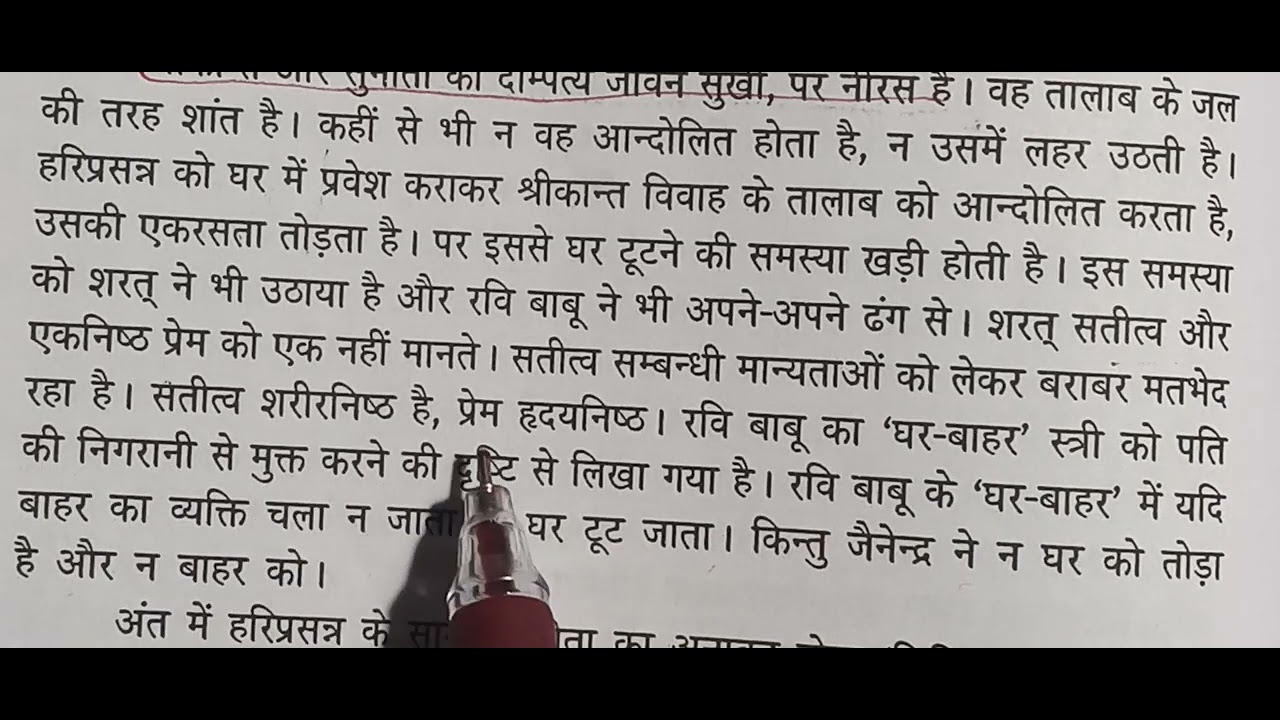 और सुनीता का दाम्पत्य जीवन सुखी, पर नीरस है। वह तालाब के जल
की तरह शांत है। कहीं से भी न वह आन्दोलित होता है, न उसमें लहर उठती है।
हरिप्रसन्न को घर में प्रवेश कराकर श्रीकान्त विवाह के तालाब को आन्दोलित करता है,
उसकी एकरसता तोड़ता है। पर इससे घर टूटने की समस्या खड़ी होती है। इस समस्या
को शरत् ने भी उठाया है और रवि बाबू ने भी अपने-अपने ढंग से। शरत् सतीत्व और
एकनिष्ठ प्रेम को एक नहीं मानते। सतीत्व सम्बन्धी मान्यताओं को लेकर बराबर मतभेद
रहा है। सतीत्व शरीरनिष्ठ है, प्रेम हृदयनिष्ठ। रवि बाबू का ‘घर-बाहर’ स्त्री को पति
की निगरानी से मुक्त करने की दृष्टि से लिखा गया है। रवि बाबू के ‘घर-बाहर’ में यदि
बाहर का व्यक्ति चला न जाता घर टूट जाता। किन्तु जैनेन्द्र ने न घर को तोड़ा
है और न बाहर को।
अंत में हरिप्रसन्न के का